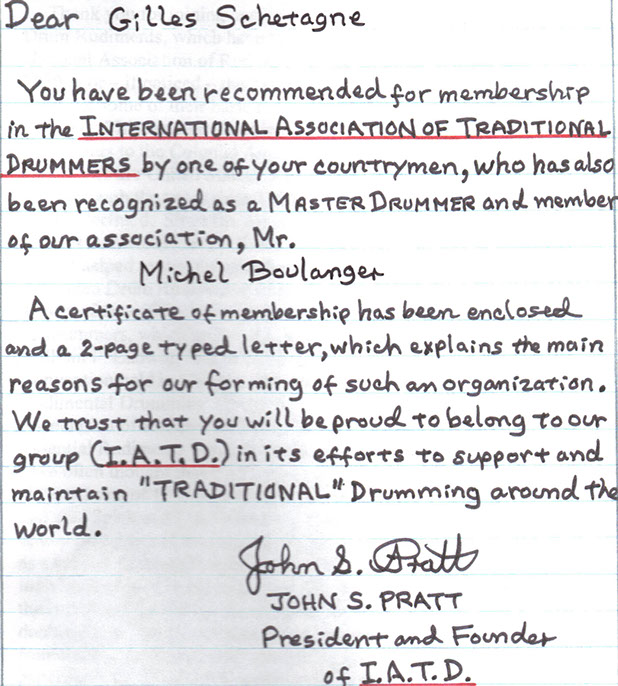 Dear Gilles Schetagne
You have been recommended for membership
in the INTERNATIONAL ASSOCIATION OF TRADITIONAL
DRUMMERS by one of your countrymen, who has also
been recognized as a MASTER DRUMMER and member
of our association, Mr.
Michel Boulanger
A certificate of membership has been enclosed
and a 2-page typed letter, which explains the main
reasons for our forming of such an organization.
We trust that you will be proud to belong to our
group (I.A.T.D.) in its efforts to support and
maintain "TRADITIONAL" Drumming around the
world.
John S. Pratt
JOHN S. PRATT
President and Founder
of I.A.T.D.